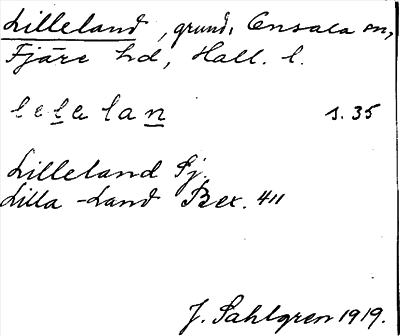 Lilleland, grund, Onsala sn,
Fjäre hd, Hall. l.
lela lan s. 35
Lilleland Sj.
Lilla-Land Bex. 411
J. Sahlgren 1919.